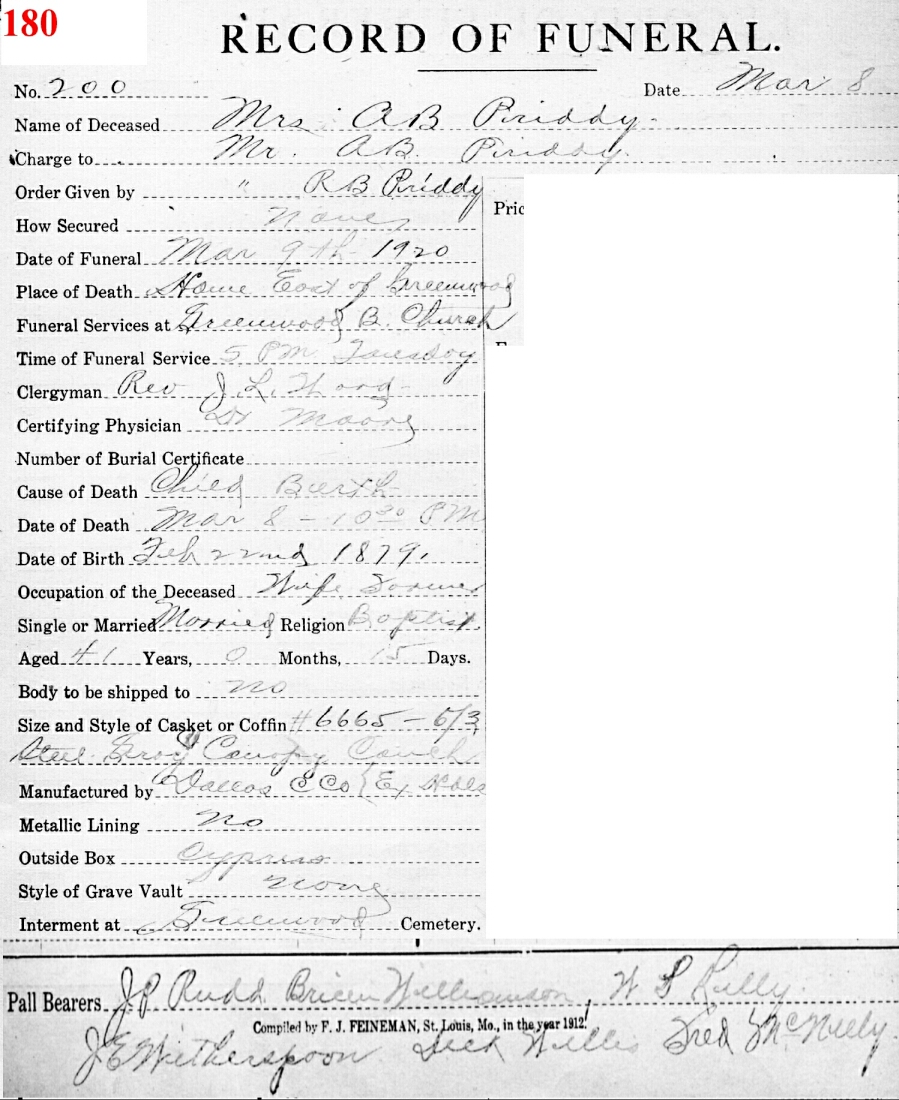 180
RECORD OF FUNERAL.
No. 200 Date Mar 8
Name of Deceased Mrs AB Priddy
Charge to Mr. AB Priddy
Order Given by " RB Priddy
Pric
How Secured None
Date of Funeral Mar 9th 1920
Place of Death Home East of Greenwood
Funeral Services at Greenwood B. Church
Time of Funeral Service 5 PM Tuesday
Clergyman Rev J. L. Ward
Certifying Physician Dr Moore
Number of Burial Certificate
Cause of Death Child Birth
Date of Death Mar 8 - 10 30 PM
Date of Birth Feb 22nd 1879.
Occupation of the Deceased Wife Farmer
Single or Married Married Religion Baptist
Aged 41 Years, 0 Months, 15 Days.
Body to be shipped to no
Size and Style of Casket or Coffin #6665 - 6/3
Steel Gray Canopy Couch
Manufactured by Dallas C Co
Metallic Lining No
Outside Box Cypress
Style of Grave Vault none
Interment at Greenwood Cemetery.
Pall Bearers J.P. Rudd Bricen Williamson, W L
Compiled by F. J. FEINEMAN, St. Louis, Mo., in the year 1912.
J E Witherspoon Dick Willis Fred McNeely.